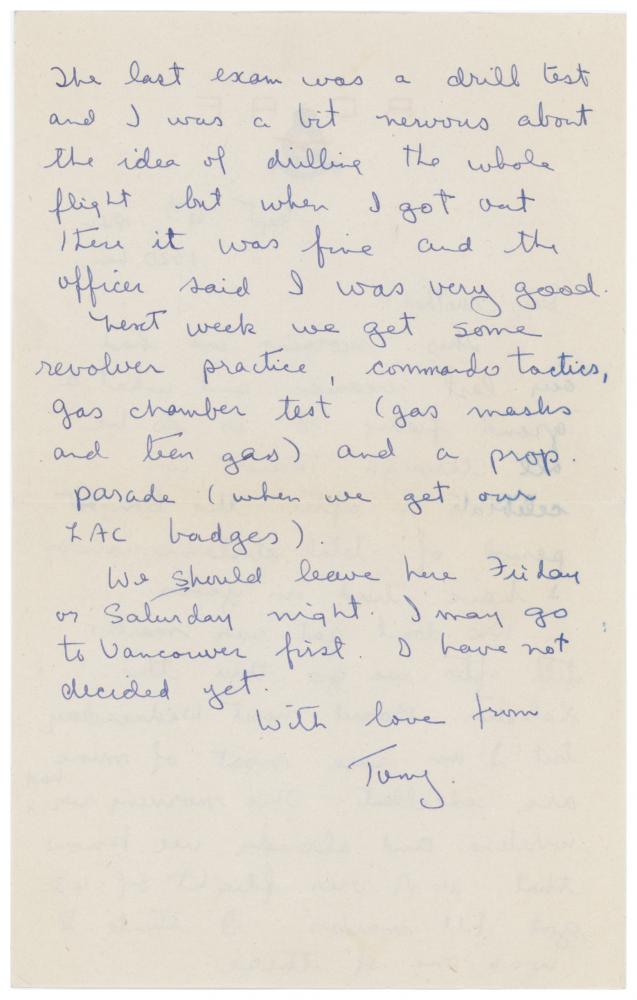 The last exam was a drill test
and I was a bit nervous about
the idea of drilling the whole
flight but when I got out
there it was fine and the
officer said I was very good.
Next week we get some
revolver practice, commando tactics,
gas chamber test (gas masks
and tear gas) and a prop.
parade (when we get our
LAC badges).
We should leave here Friday
or Saturday night. I may go
to Vancouver first. I have not
decided yet.
With love from
Tony.